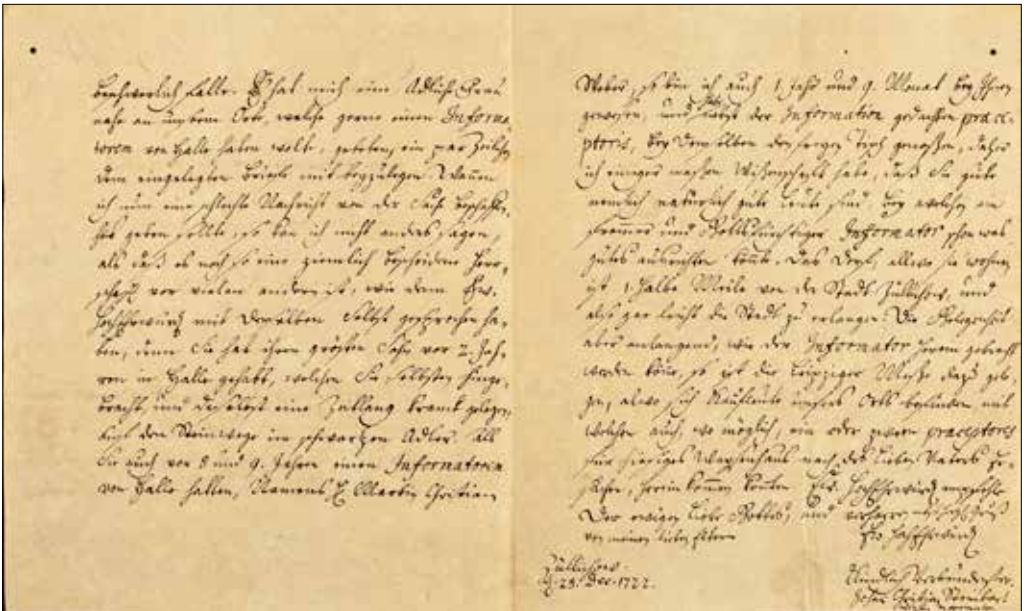 beschwerlich falle. Es hat mich eine Adliche Frau
nahe an unserm Orte, welche gerne einen Informa-
torem von Halle haben wolte, gebeten, ein paar Zeilchen
dem eingelegten Briefe mit beyzulegen. Wann
ich nun eine schlechte Nachricht von der
geben sollte, so kan ich nicht anders sagen,
als daß es noch so eine ziemlich bescheidene Herr-
schafft vor vielen andern ist, wie dann Ew.
HochEhrwürd mit Derselben Selbst gesprochen ha-
ben, denn Sie hat ihren größten Sohn vor 2. Jah-
ren in Halle gehabt, welchen Sie Selbsten hinge-
bracht, und daselbst eine Zeitlang kranck gelegen,
auf dem Steinwege im schwartzen Adler. Als
Sie auch vor 8 und 9. Jahren einen Informatorem
von Halle hatten, Namens H. Martin Christian
Weber, so bin ich auch 1. Jahr und 9. Monat bey Ihnen
gewesen, und habe nebst der Information gedachten praece-
ptoris, bey Demselben den freyen Tisch genossen, daher
ich einiger maßen Wißenschafft habe, daß Sie gute
nemlich natürlich gute Leute sind, bey welchen ein
frommer und Gottsfürchtiger Informator schon was
gutes ausrichten könte. Das Dorf, allwo sie wohnen
ist 1. halbe Meile von der Stadt Züllichow, und
also gar leicht die Stadt zu erlangen. Die Gelegenheit
aber anlangend, wie der Informator herein gebracht
werden könte, so ist die Leipziger Meße dazu gele-
gen, alwo sich Kaufleute unsers Orts befinden mit
welchen auch, wo möglich, ein oder zween praeceptores
für hiesiges Waysenhaus nach des lieben Vaters
herein kommen könten. Ew. HochEhrwürd empfehle
Der ewigen Liebe Gottes, und verharre
von meinen lieben Eltern
Ew. HochEhrwürd
Züllichow
d. 28. Dec. 1722.
Kindlich Verbundenster
Johann Christian Steinbart